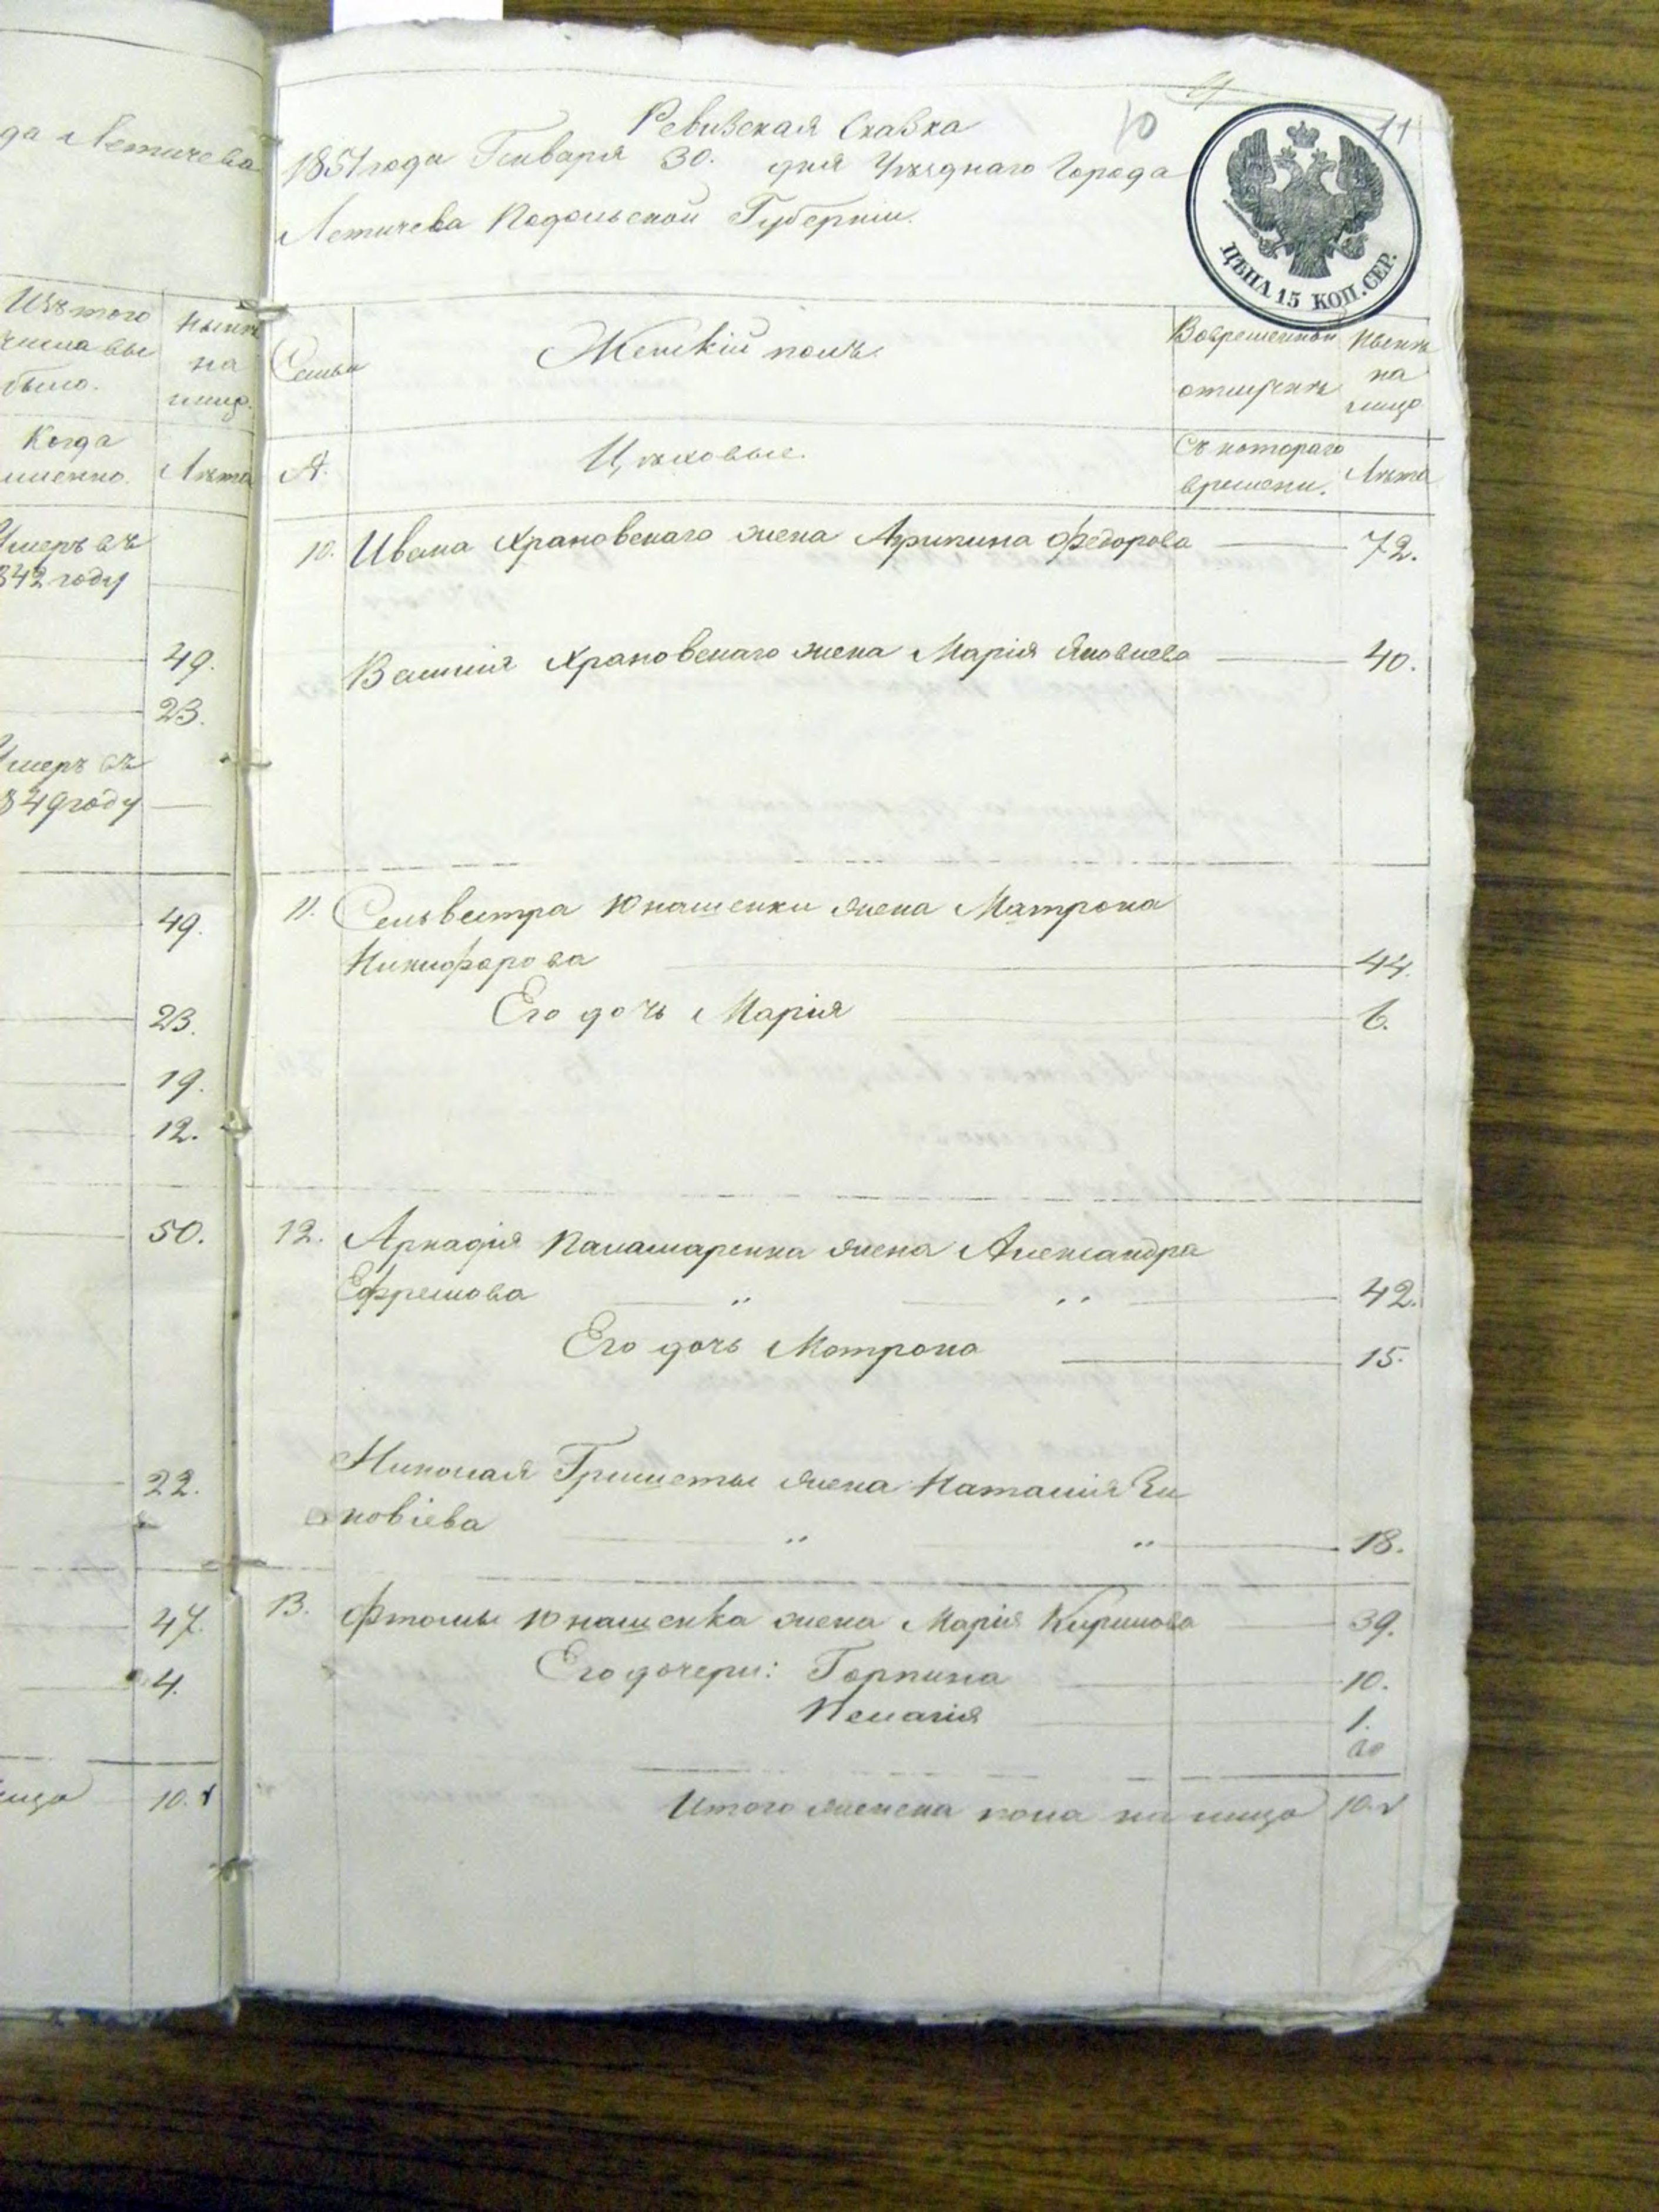 да Летичева
Изъ того
числа вы
было.
Нынѣ
на
лицо.
Когда
именно.
Лѣта
Умеръ въ
842 году
49.
23.
Умеръ въ
849 году
49.
23.
19.
12.
50.
22.
47.
4.
лицо 10.
10 11
Ревизская Сказка
1851 года Генваря 30. дня Уѣзднаго Города
Летичева Подольской Губерніи.
ЦѢНА 15 КОП. СЕР.
Семьи
Женскій полъ.
Вовременной
отлучкѣ
Нынѣ
на
лицо
Цѣховые.
Съ котораго
времени.
Лѣта
10. Ивана Храновскаго жена Агрипина Федорова 72.
Василія Храновскаго жена Марія Яковлева 40.
11. Сельвестра Юнашенки жена Матрона
Никифарова 44.
Его дочь Марія 6.
12. Аркадія Паламаренка жена Александра
Ефремова " " 42.
Его дочь Матрона 15.
Николая Гришеты жена Наталія Зи
новіева " " 18.
13. Фтомы Юнашенка жена Марія Кирилова 39.
Его дочери: Горпина 10.
Пелагія 1.
Итого женска пола на лицо 10.